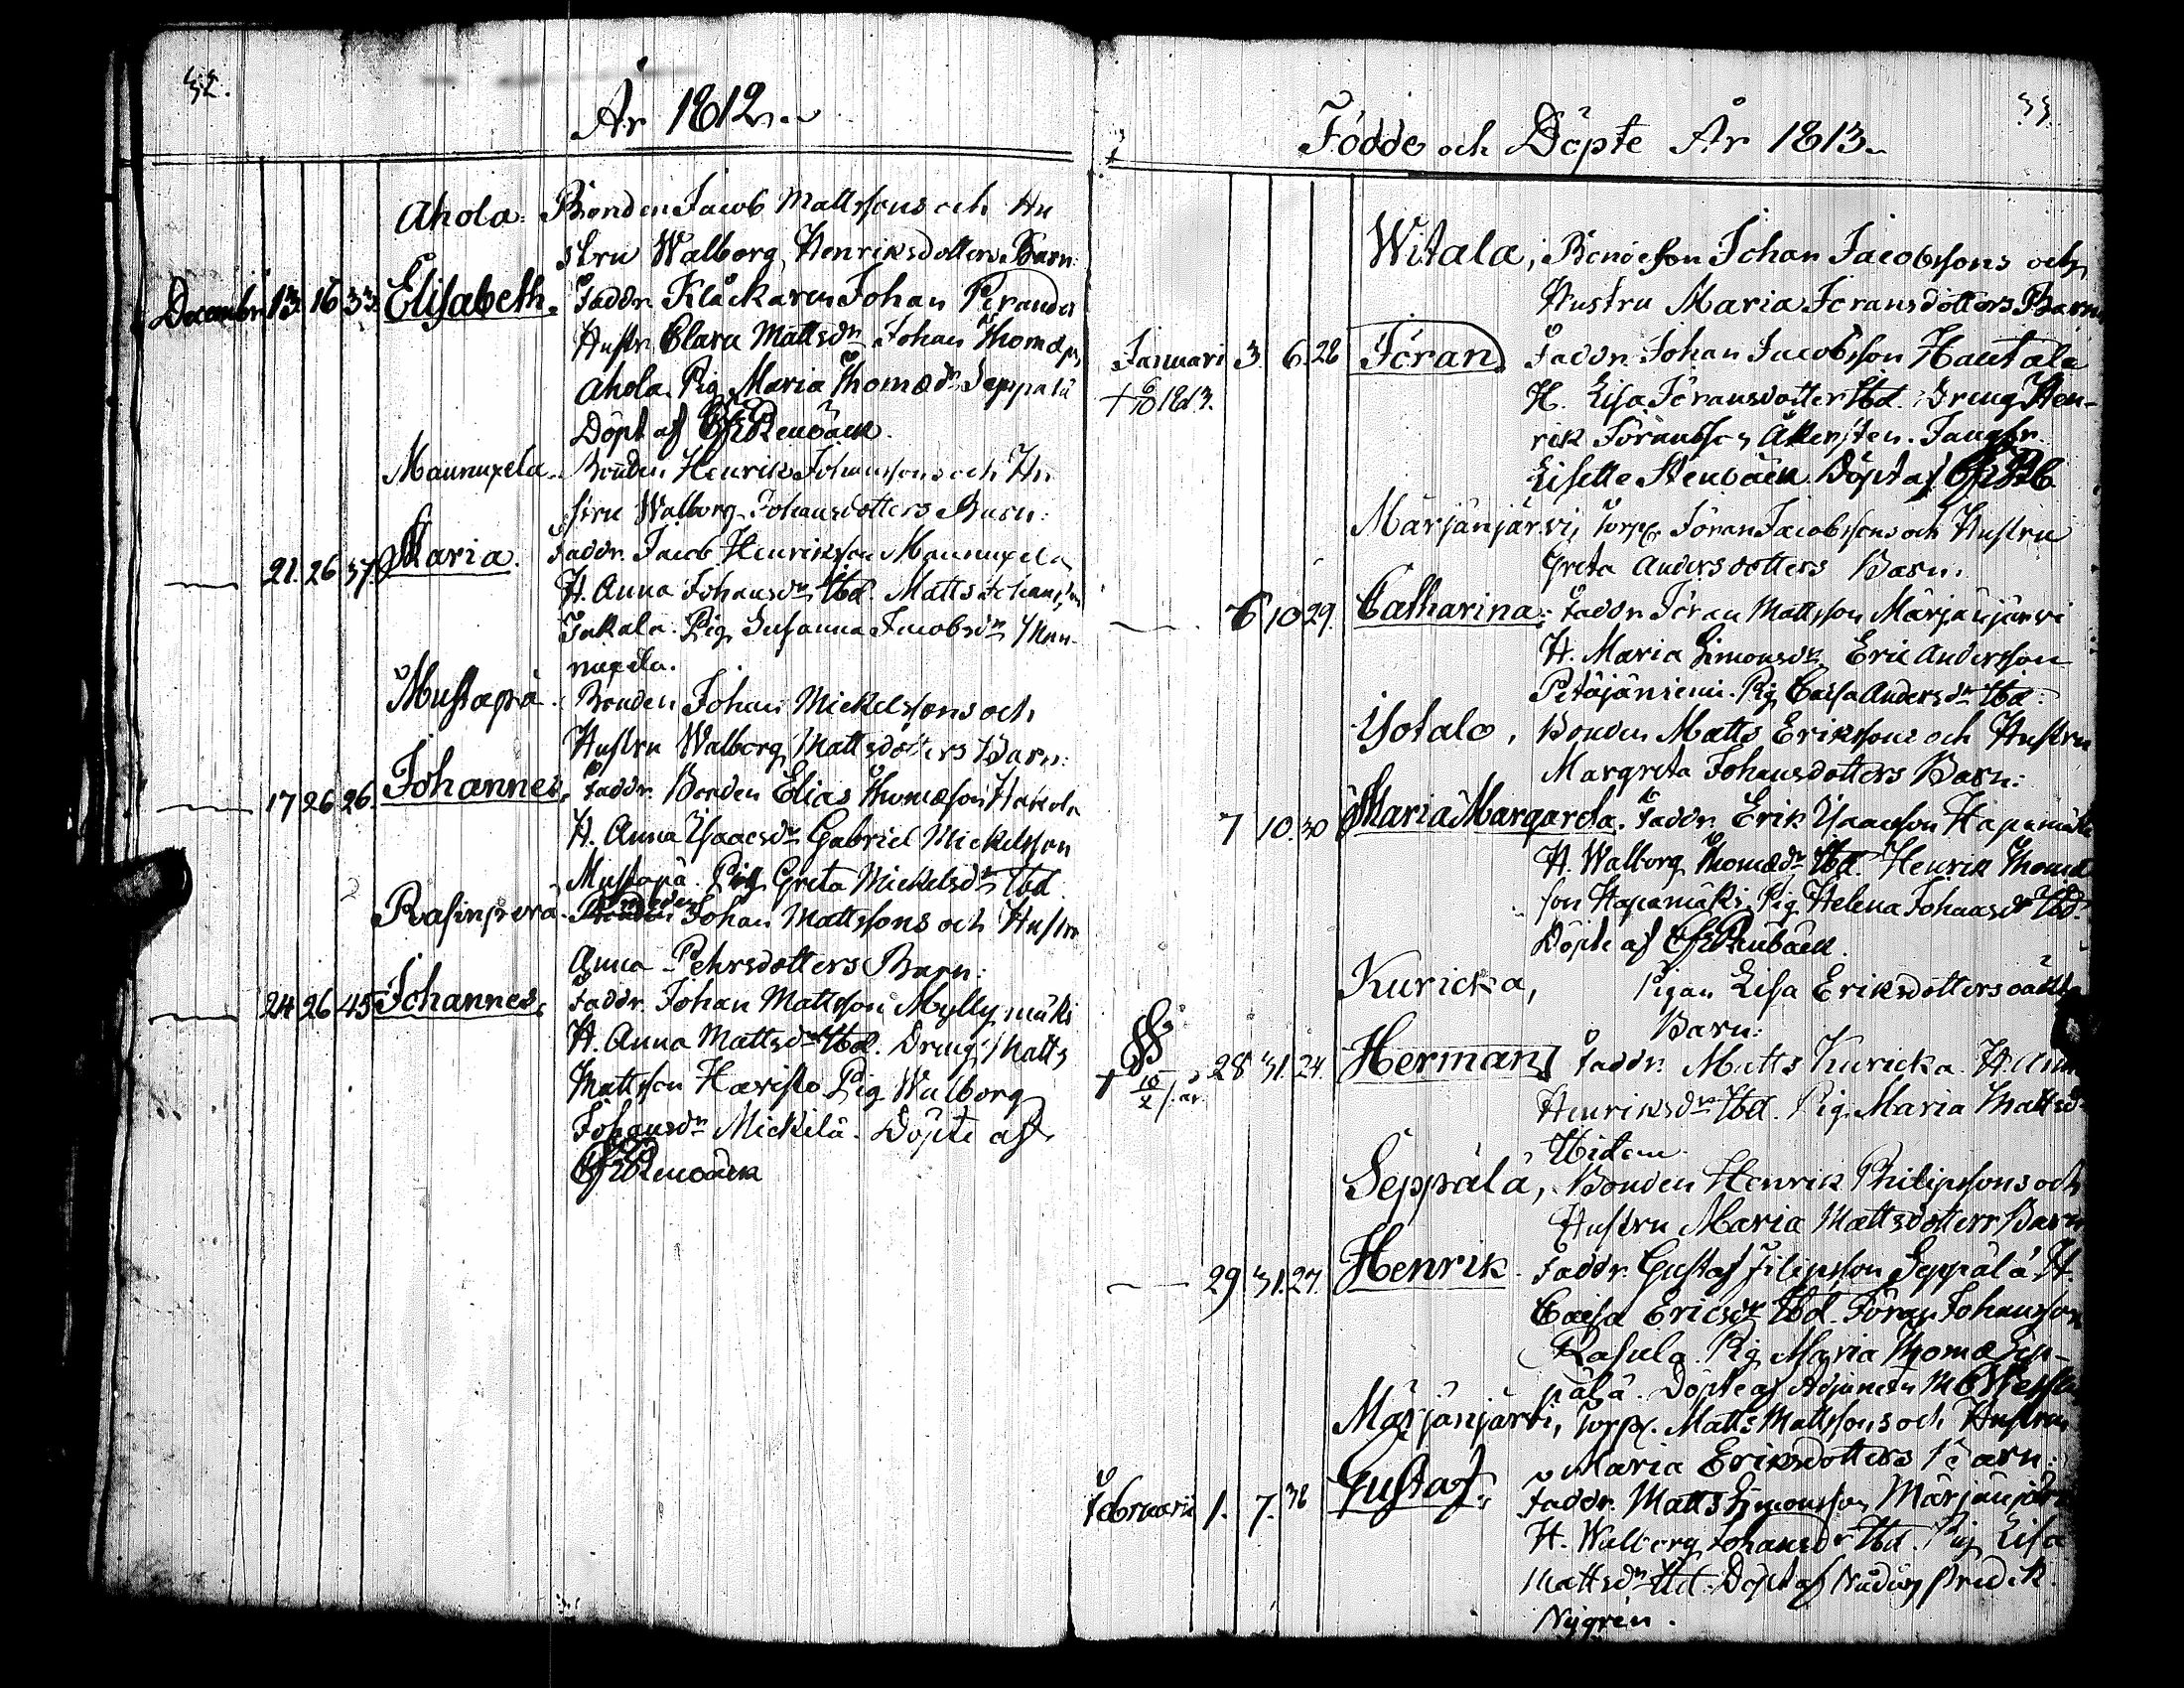 32.
År 1812.
Ahola. Bonden Jacob Mattssons och Hu
stru Walborg Henriksdotters Barn:
Decembr. 13. 16 33. Elisabeth. Faddr. Klåckaren Johan Perander
Hustr. Clara Mattsdr Johan Thomæs.
Ahola. Pig. Maria Thomædr Seppälä
Döpt af
Bonden Henrik Johanssons och Hu
stru Walborg Johansdotters Barn:
21. 26 37. Maria. Faddr. Jacob Henriksson
H. Anna Johansdr Ibd. Matts Johansson
Jakala. Pig. Susanna Jacobsdr Man-
nuxela.
Mustapä. Bonden Johan Mickelssons och
Hustru Walborg Mattsdotters Barn:
17 26 26. Johannes. Faddr. Bonden Elias Thomæson
H. Anna Isaacsdr Gabriel Mickelsson
Mustapä. Pig Greta Mickelsdr Ibd.
Johan Mattssons och Hustru
Anna Pehrsdotters Barn:
24 26 45 Johannes. Faddr. Johan Mattsson Myllymäki
H. Anna Mattsdr Ibd. Dreng Matts
Mattsson Haristo Pig Walborg
Johansdr Mickilä. Döpte af
33.
Födde och Döpte År 1813.
Witala, Bondeson Johan Jacobssons och
Hustru Maria Joransdotters Barn
Januari 3. 6. 28 Jöran. Faddr. Johan Jacobsson Hautala
H. Lisa Joransdotter Ibd. Dreng Hen-
rik Joransson Åkersten. Jungfr.
Lisette Stenbäck. Döpt af
Märjänjärvi, Torp. Jöran Jacobssons och Hustru
Greta Andersdotters Barn:
6 10 29. Catharina: Faddr. Jöran Mattsson Märjänjärvi
H. Maria Simonsdr Eric Andersson
Petäjäniemi. Pig Caisa Andersdr Ibd:
Isotalo, Bonden Matts Erikssons och Hustru
Margreta Johansdotters Barn:
7 10. 30 Maria Margareta. Faddr. Erik Isaacsson Hapamäki
H. Walborg Thomædr Ibd. Henrik Thomæ
son Hapamäki, Pig Helena Johansdr Ibd.
Döpte af
Kuricka, Pigan Lisa Eriksdotters oäkta
Barn:
28 31. 24. Herman Faddr. Matts Kuricka. H. Anna
Henriksdr Ibd. Pig. Maria Mattsdr
Ibidem
Seppälä, Bonden Henrik Philipssons och
Hustru Maria Mattsdotters Barn
29 31. 27. Henrik. Faddr. Gustaf Filipsson Seppälä H.
Caisa Ericsdr Ibd. Jöran Johansson
Rasula. Pig Maria Thomæ Sep-
pälä. Döpte af Adjuncten M
Märjänjärvi, Torp. Matts Mattssons och Hustru
Maria Eriksdotters Barn:
Februarii 1. 7. 38 Gustaf. Faddr. Matts Simonsson Märjänjärvi
H. Walborg Johansdr Ibd. Pig Lisa
Mattsdr Ibd. Döpt af
Nygrén.